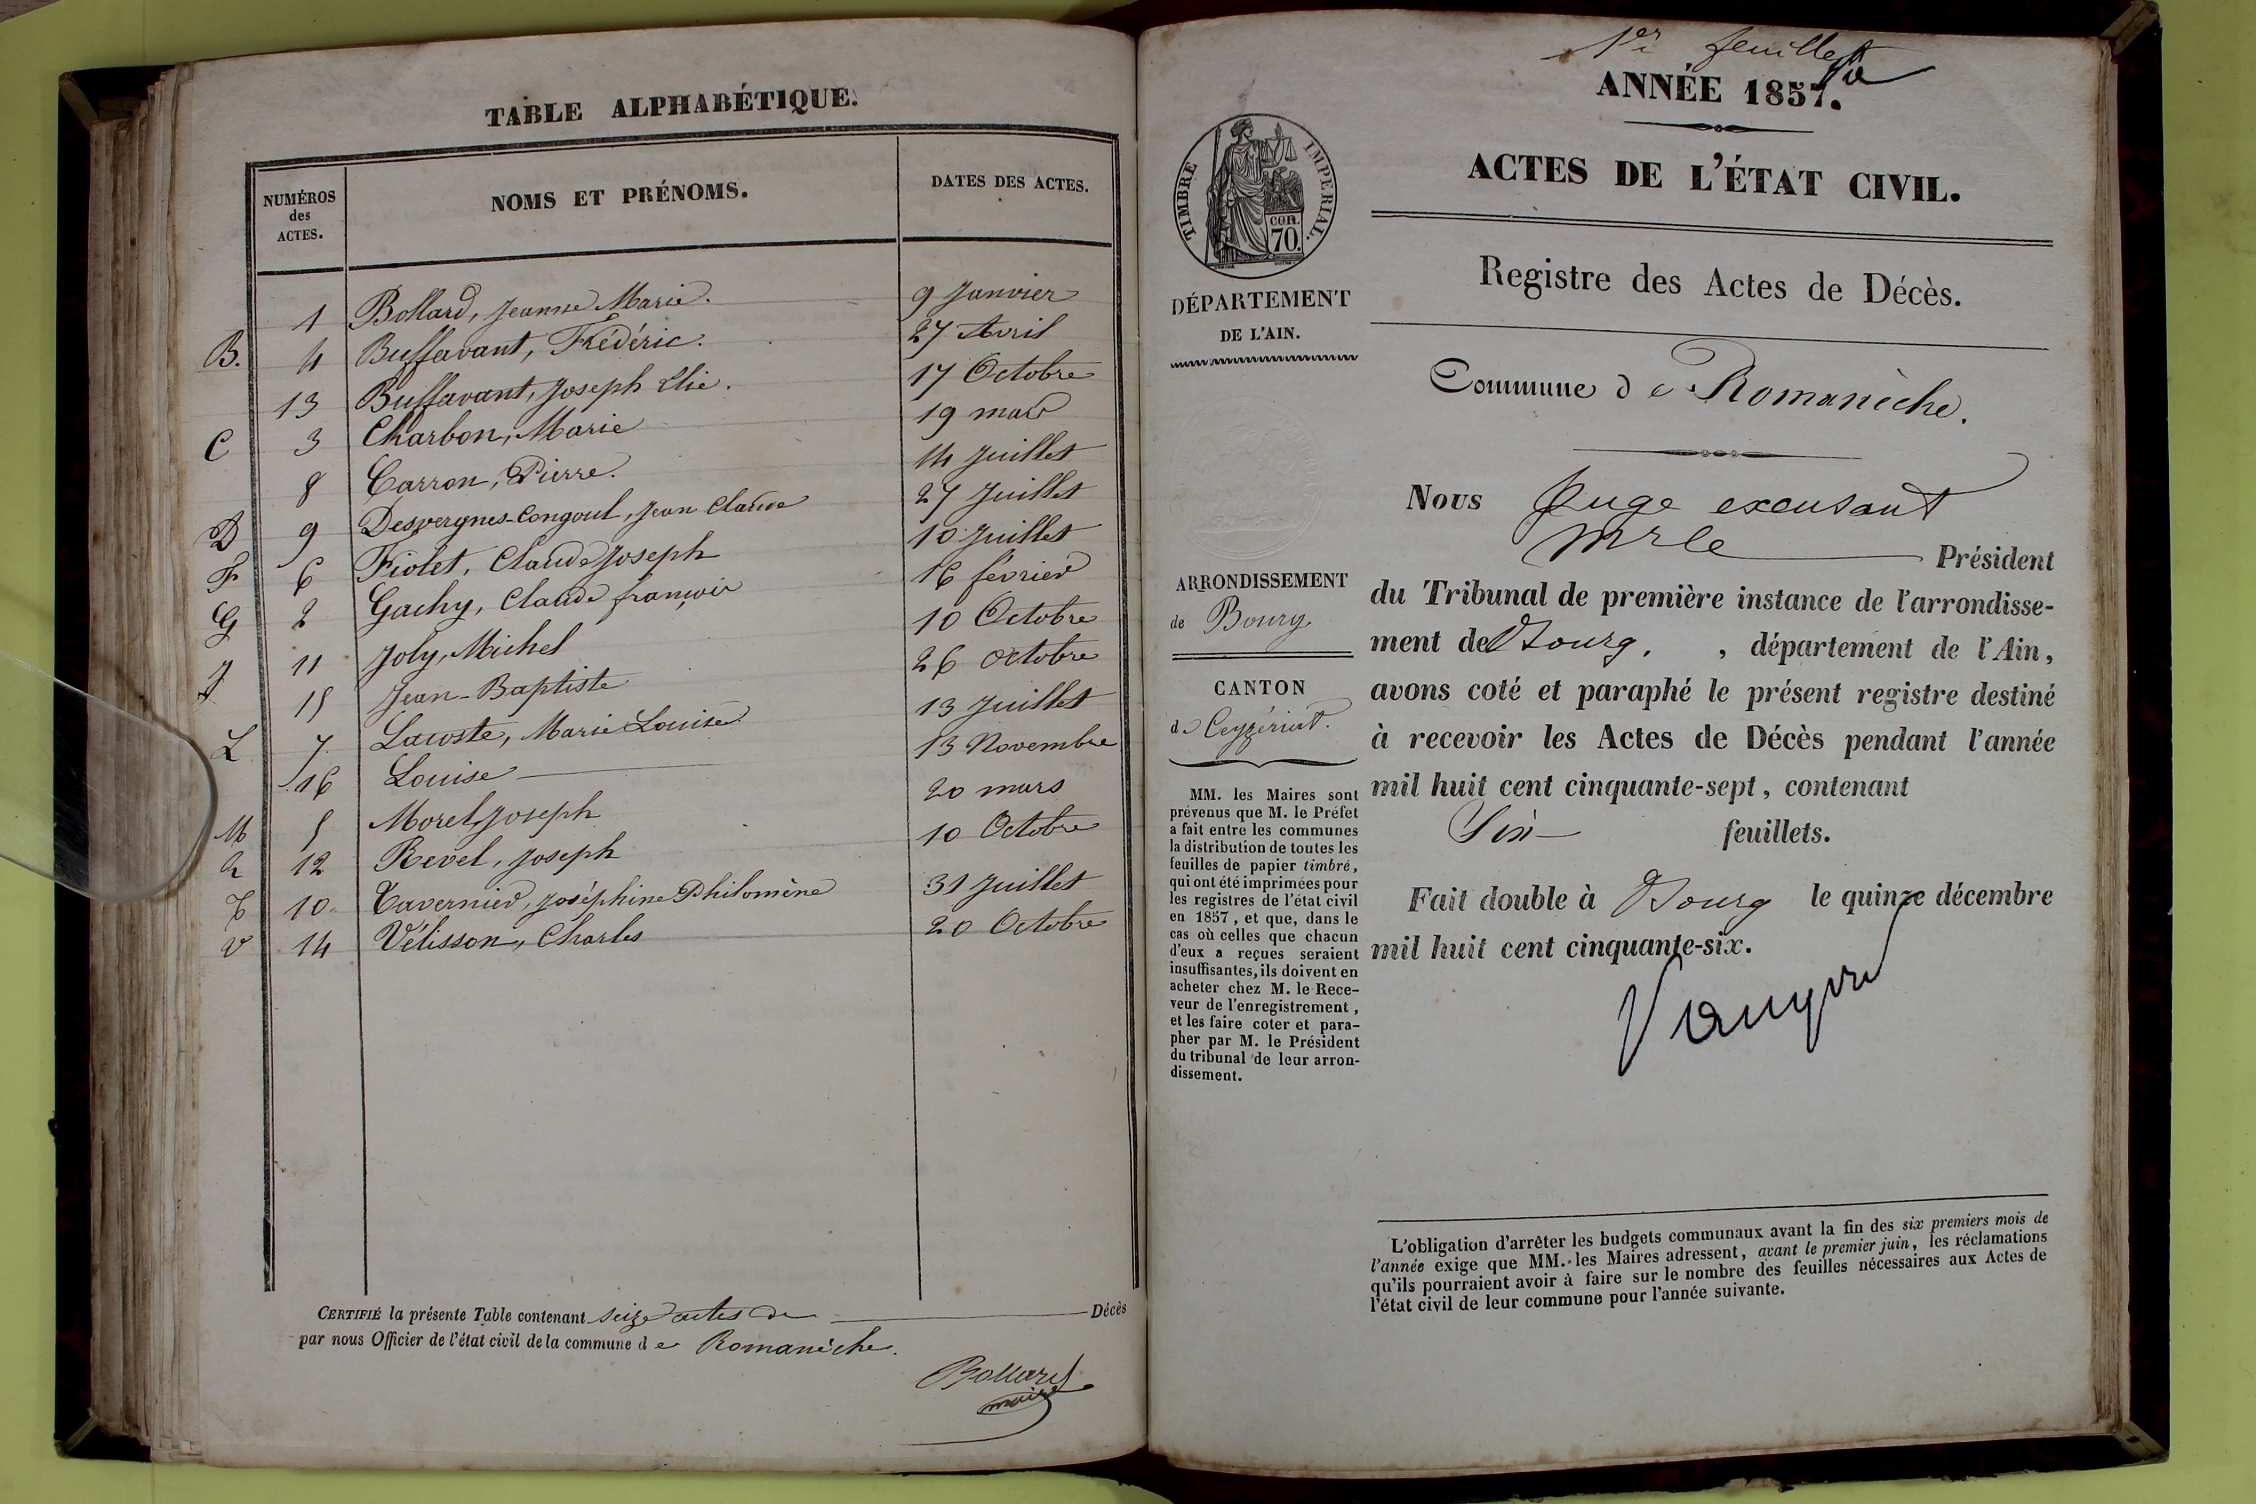 TABLE ALPHABÉTIQUE.
NUMÉROS des ACTES. NOMS ET PRÉNOMS. DATES DES ACTES.
1 Bollard, Jeanne Marie. 9 Janvier
B. 4 Buffavant, Frédéric. 27 Avril
13 Buffavant, Joseph Elie. 17 Octobre
C 3 Charbon, Marie 19 mars
8 Carron, Pierre. 14 Juillet
D 9 Desvergnes-Congoul, Jean Claude 27 Juillet
F 6 Fiolet, Claude Joseph 10 Juillet
G 2 Gachy, Claude françois 16 février
J 11 Joly, Michel 10 Octobre
15 Jean-Baptiste 26 octobre
L 7 Lacoste, Marie Louise 13 Juillet
16 Louise 13 Novembre
M 5 Morel, Joseph 20 mars
R 12 Revel, Joseph 10 Octobre
T 10 Tavernier, Joséphine Philomène 31 Juillet
V 14 Vélisson, Charles 20 Octobre
CERTIFIÉ la présente Table contenant seize actes de Décès
par nous Officier de l'état civil de la commune de Romanèche.
Bollard
maire
1er feuillet
ANNÉE 1857.
ACTES DE L'ÉTAT CIVIL.
Registre des Actes de Décès.
Commune de Romanèche.
TIMBRE IMPÉRIAL.
COR.
70.
DÉPARTEMENT
DE L'AIN.
ARRONDISSEMENT
de Bourg
CANTON
de Ceyzériat.
MM. les Maires sont
prévenus que M. le Préfet
a fait entre les communes
la distribution de toutes les
feuilles de papier timbré,
qui ont été imprimées pour
les registres de l'état civil
en 1857, et que, dans le
cas où celles que chacun
d'eux a reçues seraient
insuffisantes, ils doivent en
acheter chez M. le Rece-
veur de l'enregistrement,
et les faire coter et para-
pher par M. le Président
du tribunal de leur arron-
dissement.
Nous Juge excusant
Mr le Président
du Tribunal de première instance de l'arrondisse-
ment de Bourg, département de l'Ain,
avons coté et paraphé le présent registre destiné
à recevoir les Actes de Décès pendant l'année
mil huit cent cinquante-sept, contenant
Six feuillets.
Fait double à Bourg le quinze décembre
mil huit cent cinquante-six.
L'obligation d'arrêter les budgets communaux avant la fin des six premiers mois de
l'année exige que MM. les Maires adressent, avant le premier juin, les réclamations
qu'ils pourraient avoir à faire sur le nombre des feuilles nécessaires aux Actes de
l'état civil de leur commune pour l'année suivante.